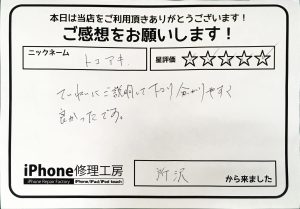 本日は当店をご利用頂きありがとうございます!
ご感想をお願いします!
ニックネーム
トコアキ
星評価
☆☆☆☆☆
ていねいにご説明して下さり 分かりやすく
良かったです。
iPhone修理工房
iPhone Repair Factory
iPhone/iPad/iPod touch
所沢
から来ました